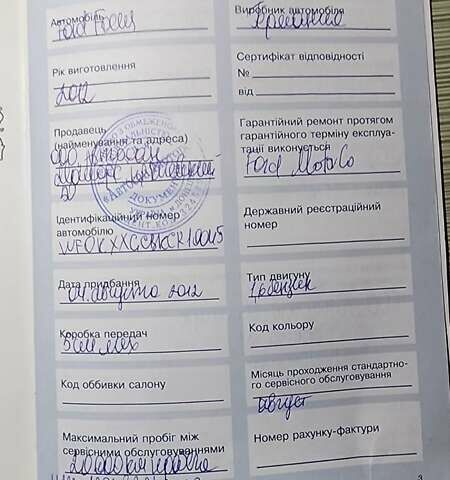 Автомобіль
Ford Focus
Рік виготовлення
2012
Продавець
(найменування та адреса)
Ідентифікаційний номер
автомобілю
Дата придбання
04 августа 2012
Коробка передач
5 ст мех
Код оббивки салону
Максимальний пробіг між
сервісними обслуговуваннями
20000км
Виробник автомобіля
Сертифікат відповідності
№
від
Гарантійний ремонт протягом
гарантійного терміну експлуа-
тації виконується
Ford Motor Co
Державний реєстраційний
номер
Тип двигуну
1,6 бензин
Код кольору
Місяць проходження стандартно-
го сервісного обслуговування
август
Номер рахунку-фактури
3